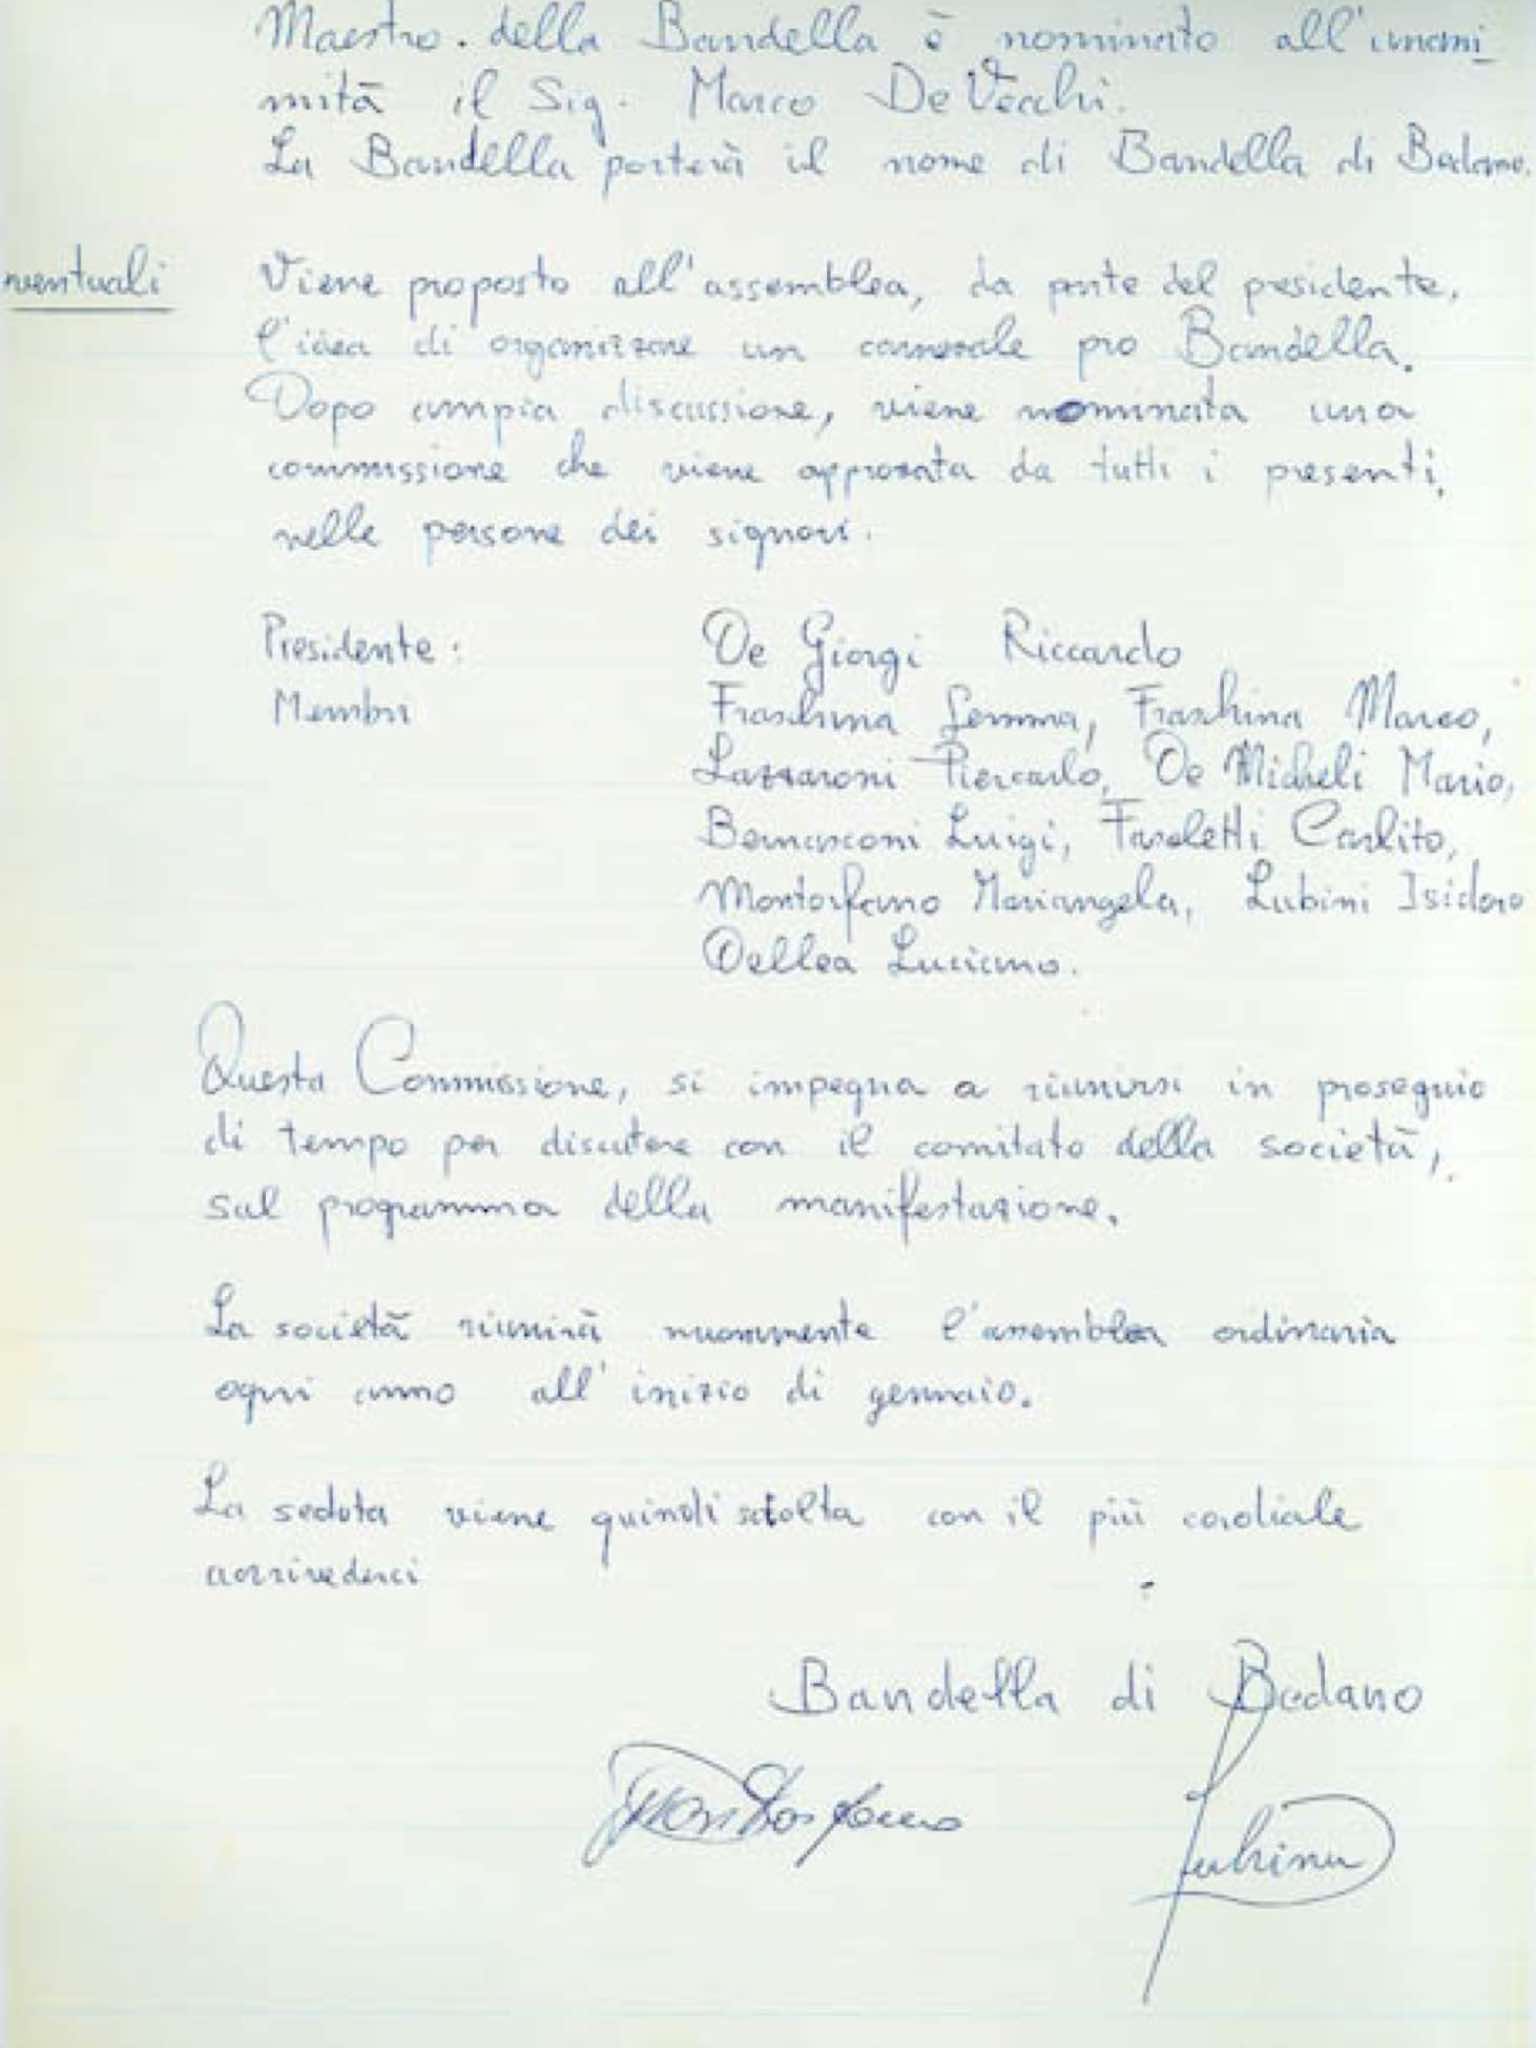 Maestro. della Bandella è nominato all'unani
mità il Sig. Marco De Vecchi.
La Bandella porterà il nome di Bandella di Bedano.
ventuali
Viene proposto all'assemblea, da parte del presidente,
l'idea di organizzare un carnevale pro Bandella.
Dopo ampia discussione, viene nominata una
commissione che viene approvata da tutti i presenti,
nelle persone dei signori.
Presidente: De Giorgi Riccardo
Membri Fraschina Gemma, Fraschina Marco,
Lazzaroni Piercarlo, De Micheli Mario,
Bernasconi Luigi, Favoletti Carlito,
Montorfano Mariangela, Lubini Isidoro
Dellea Luciano.
Questa Commissione, si impegna a riunirsi in proseguio
di tempo per discutere con il comitato della società,
sul programma della manifestazione.
La società riunirà nuovamente l'assemblea ordinaria
ogni anno all'inizio di gennaio.
La seduta viene quindi sciolta con il più cordiale
arrivederci
Bandella di Bedano
Montorfano Lubini